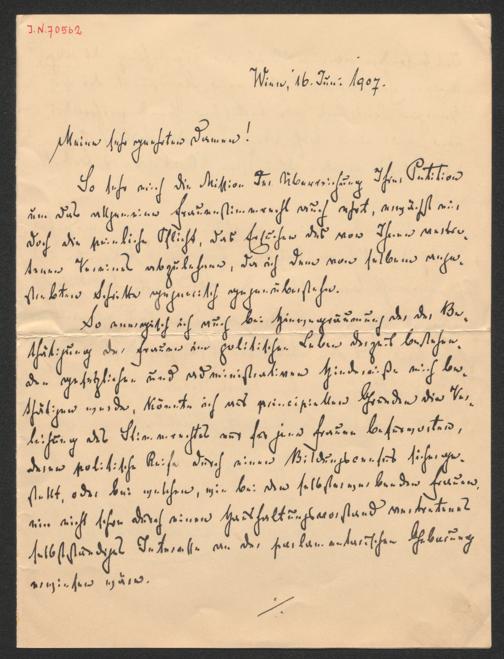 J.N. 70562
Wien, 16. Juni 1907.
Meine sehr geehrten Damen!
So sehr mich die Mission der Überreichung Ihrer Petition
um das allgemeine Frauenstimmrecht auch ehrt, erwächst mir
doch die peinliche Pflicht, das Ersuchen des von Ihnen vertre-
tenen Vereines abzulehnen, da ich dem von selbem ange-
strebten Schritte gegnerisch gegenüberstehe.
So energisch ich auch bei Hinwegräumung der der Be-
thätigung der Frauen im politischen Leben derzeit bestehen-
den gesetzlichen und administrativen Hindernisse mich be-
thätigen werde, könnte ich aus principiellen Gründen die Ver-
leihung des Stimmrechtes nur für jene Frauen befürworten,
deren politische Reife durch einen Bildungscensus sicherge-
stellt, oder bei welchen, wie bei den selbsterwerbenden Frauen,
ein nicht schon durch einen Haushaltungsvorstand vertretenes
selbstständiges Interesse an der parlamentarischen Gebarung
erwiesen wäre.
./.